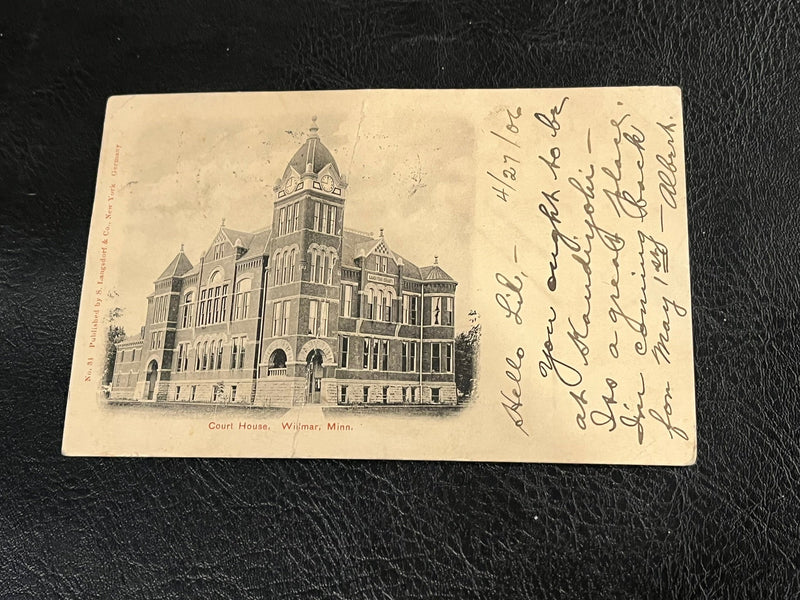 No. 34 Published by S. Langsdorf & Co., New York - Germany
Court House. Willmar, Minn.
4/27/06
Hello Lil, -
You ought to be
at Kandiyohi -
Its a great place,
I'm coming back
for May 1st - Albert.